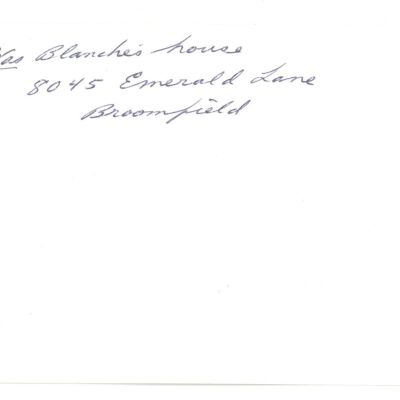 Was Blanche's house
8045 Emerald Lane
Broomfield